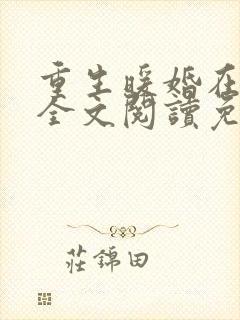 重生暖婚在
全文閱讀免
莊錦田